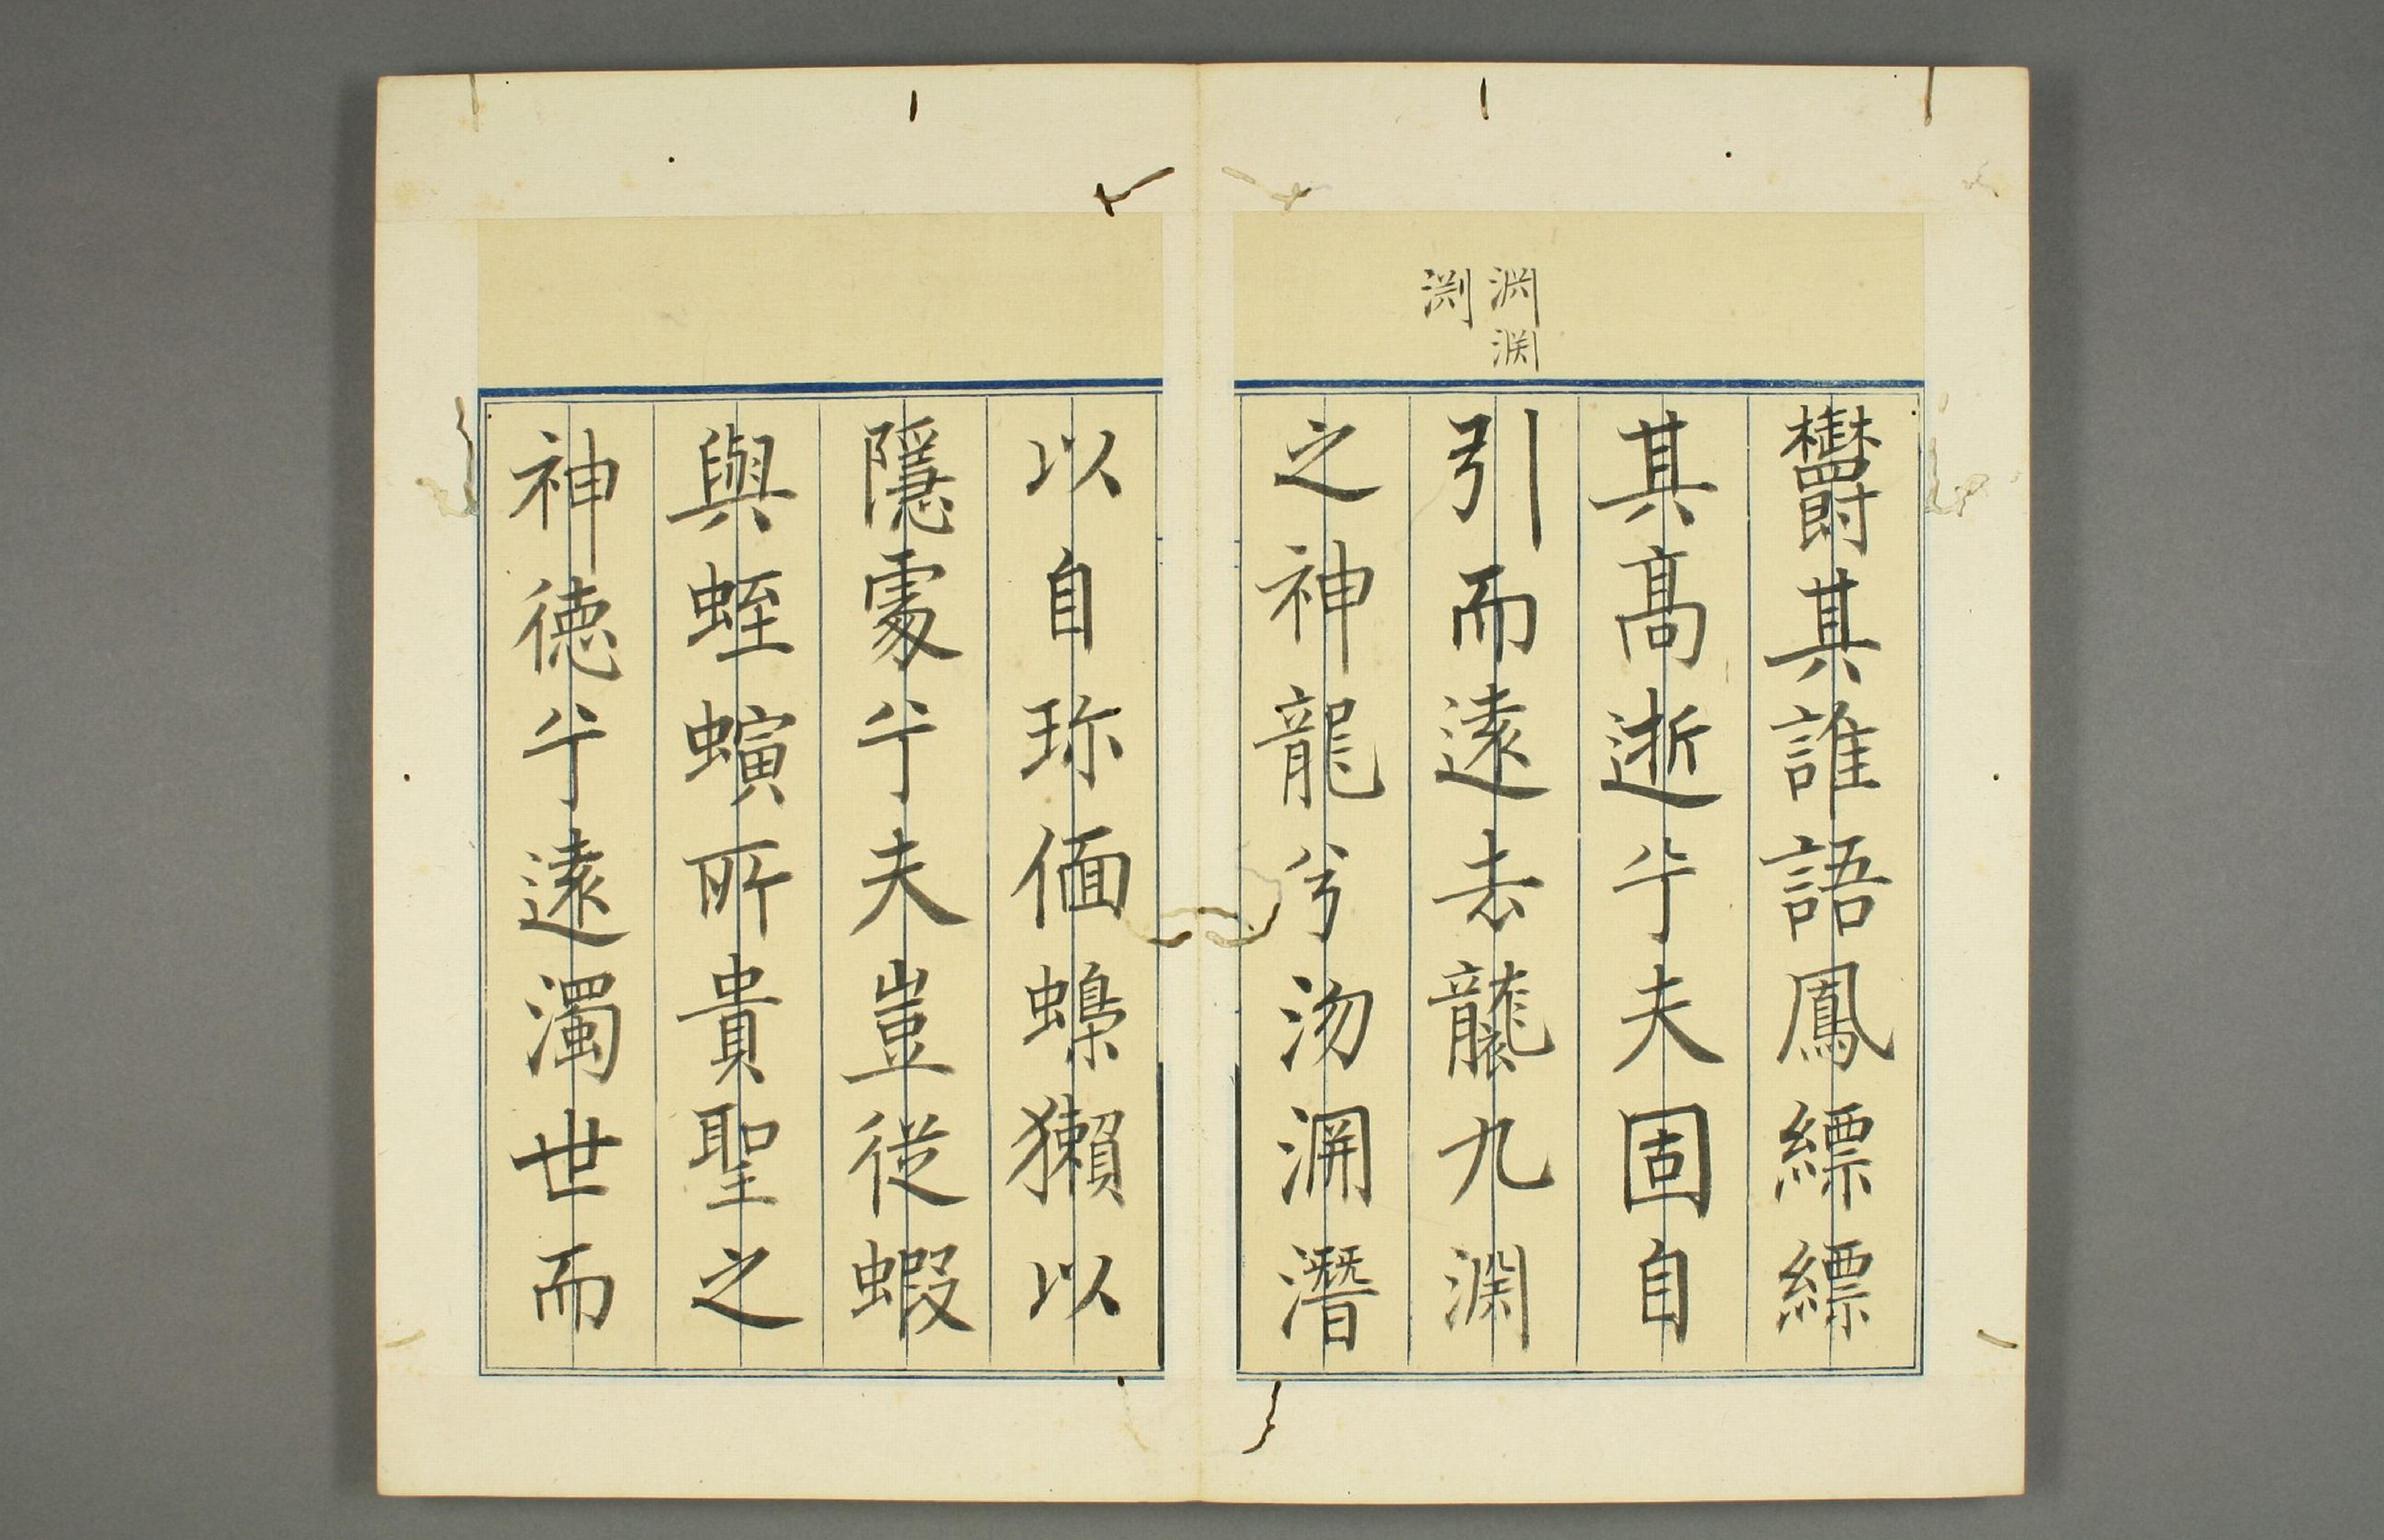 渊渊
渕
欝其誰語鳳縹縹
其髙逝兮夫固自
引而逺去襲九渊
之神龍兮沕淵潛
以自珎偭蟂獺以
隱處兮夫豈従蝦
與蛭螾所貴聖之
神徳兮逺濁世而